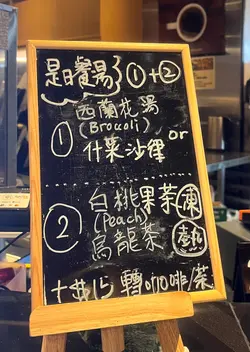 是日餐湯 ①+②
西蘭花湯
(Brocoli) or
① 什菜沙律
白桃果茶 凍
② (Peach)
烏龍茶 熱
十$15 轉 咖啡/茶